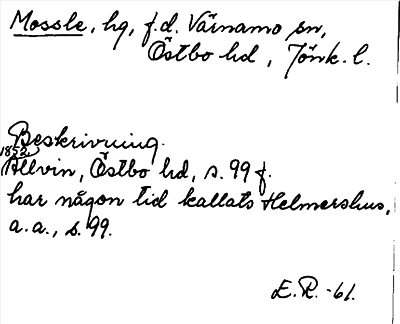 Mossle, hg, f.d. Värnamo sn,
Östbo hd, Jönk. l.
Beskrivning.
1852
Allvin, Östbo hd, s. 99 f.
har någon tid kallats Helmershus,
a.a., s. 99.
E.R. -61.